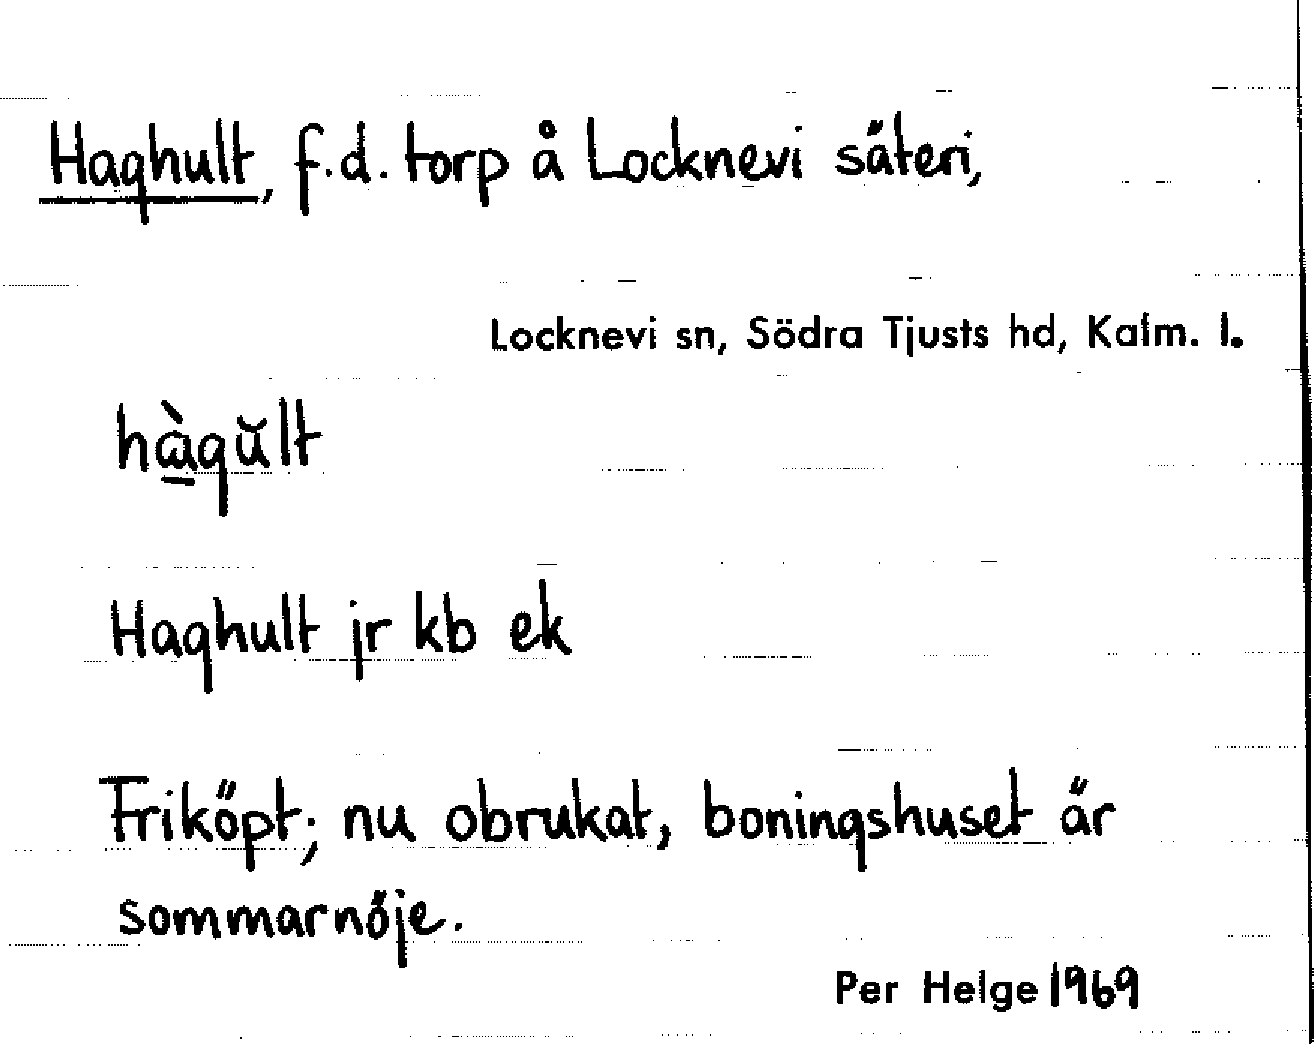 Haghult, f.d. torp å Locknevi säteri,
Locknevi sn, Södra Tjusts hd, Kalm. l.
hà̱gŭlt
Haghult jr kb ek
Friköpt; nu obrukat, boningshuset är
sommarnöje.
Per Helge 1969